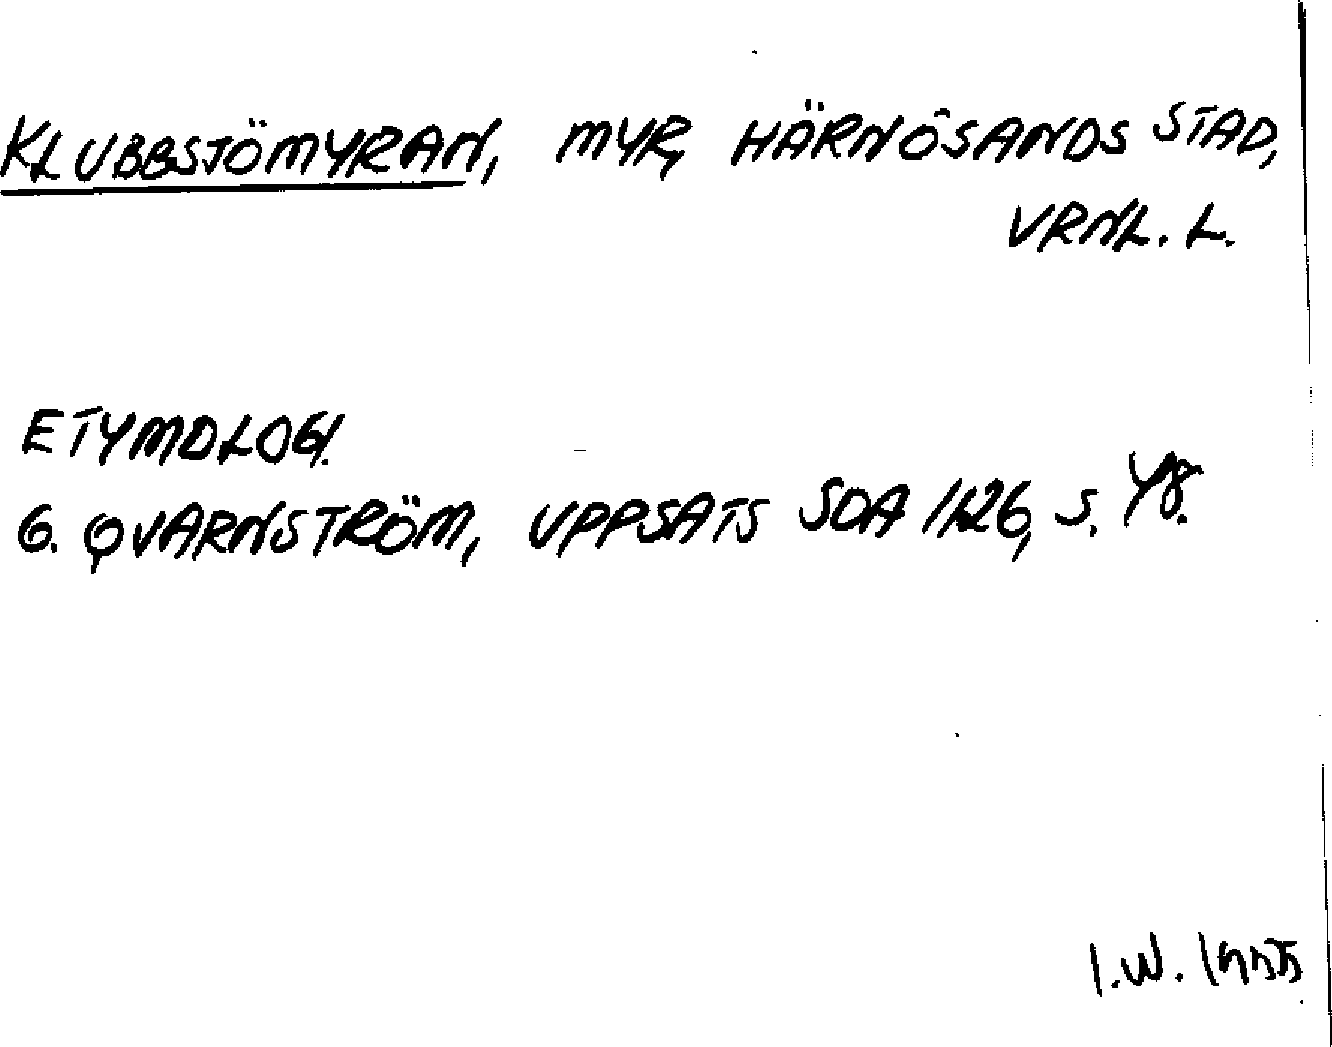 KLUBBSJÖMYRAN, MYR, HÄRNÖSANDS STAD,
VRNL. L.
ETYMOLOGI.
G. QVARNSTRÖM, UPPSATS SOA 1426, S. 48.
I.W. 1955